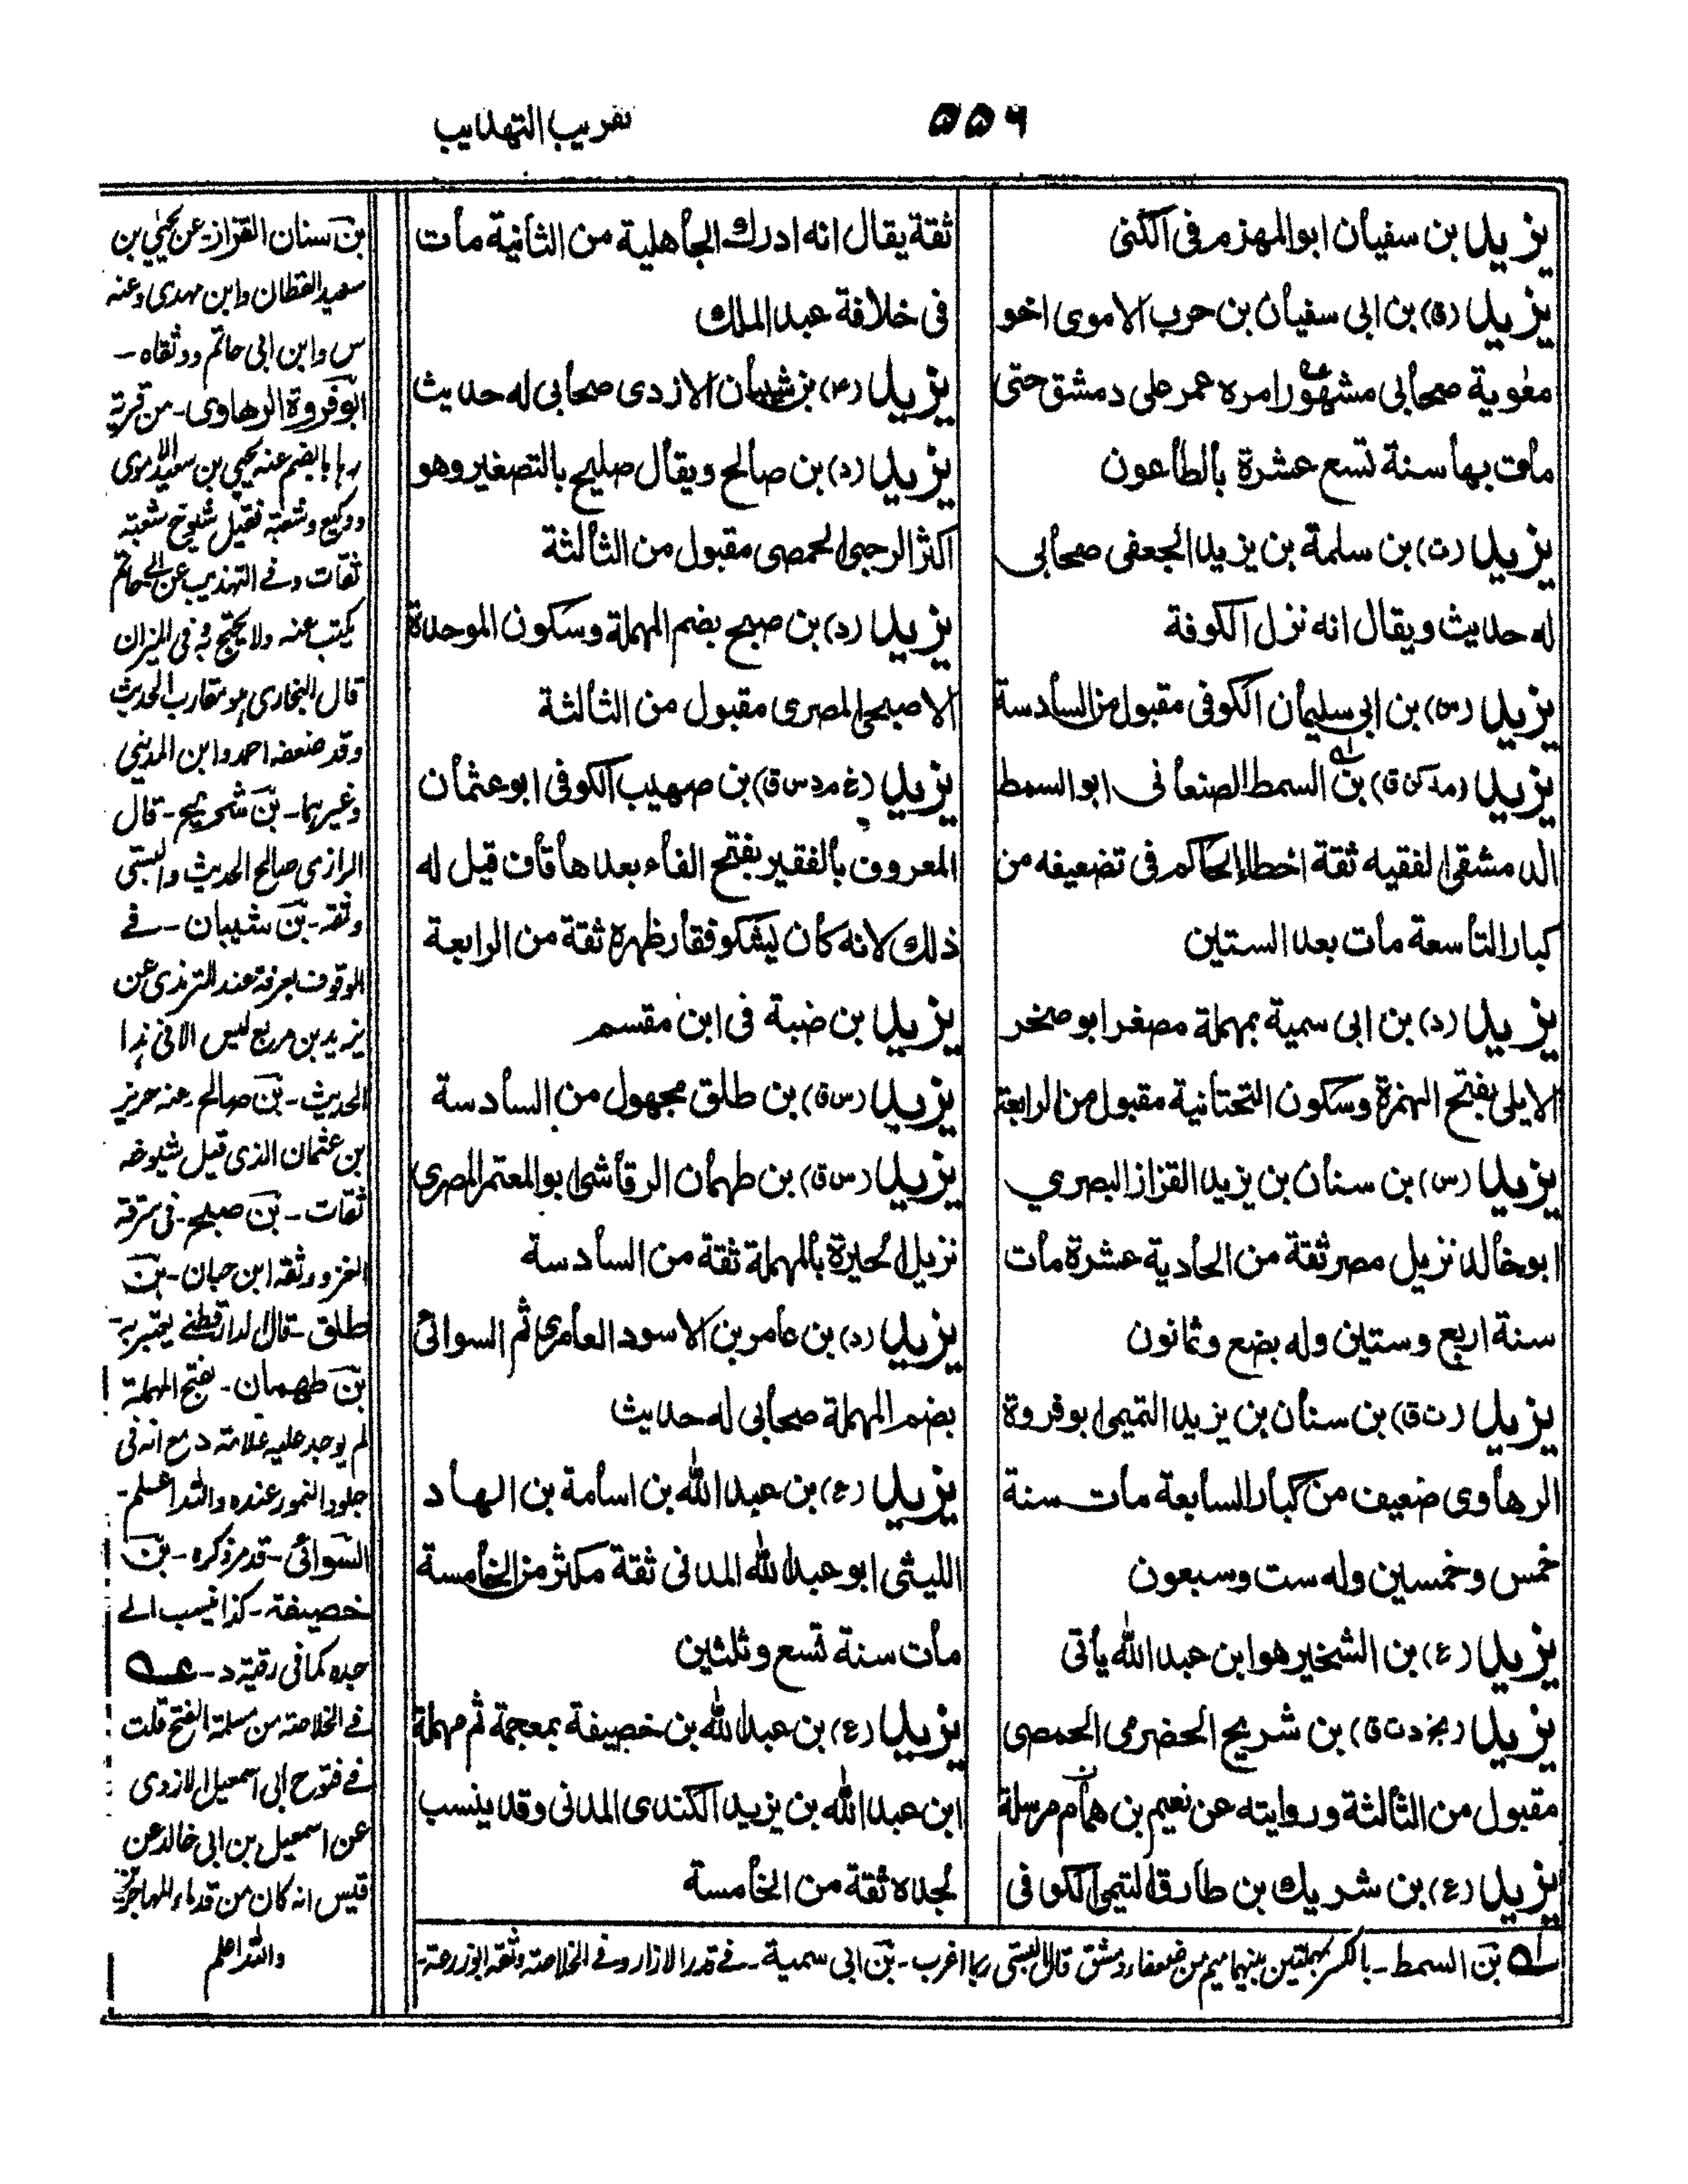 ٥٥٦
تقريب التهذيب
يزيد بن سفيان ابو المهزم فى الكنى
يزيد (ق) بن ابى سفيان بن حرب الاموى اخو
معوية صحابى مشهور امره عمر على دمشق حتى
مات بها سنة تسع عشرة بالطاعون
يزيد (ت) بن سلمة بن يزيد الجعفى صحابى
له حديث ويقال انه نزل الكوفة
يزيد (س) بن ابى سليمان الكوفى مقبول من السادسة
يزيد (مد كن ق) بن السمط الصنعانى ابو السمط
الدمشقى الفقيه ثقة اخطا الحاكم فى تضعيفه من
كبار التاسعة مات بعد الستين
يزيد (د) بن ابى سمية بمهملة مصغر ابو صخر
الايلى بفتح الهمزة وسكون التحتانية مقبول من الرابعة
يزيد (س) بن سنان بن يزيد القزاز البصري
ابو خالد نزيل مصر ثقة من الحادية عشرة مات
سنة اربع وستين وله بضع وثمانون
يزيد (ت ق) بن سنان بن يزيد التميمى ابو فروة
الرهاوى ضعيف من كبار السابعة مات سنة
خمس وخمسين وله ست وسبعون
يزيد (ع) بن الشخير هو ابن عبد الله ياتى
يزيد (بخ د ت ق) بن شريح الحضرمى الحمصى
مقبول من الثالثة وروايته عن نعيم بن همام مرسلة
يزيد (ع) بن شريك بن طارق التيمى الكوفى
ثقة يقال انه ادرك الجاهلية من الثانية مات
فى خلافة عبد الملك
يزيد (م) بن شيبان الازدى صحابى له حديث
يزيد (د) بن صالح ويقال صليح بالتصغير وهو
اكثر الرحبى الحمصى مقبول من الثالثة
يزيد (د) بن صبح بضم المهملة وسكون الموحدة
الاصبحى المصرى مقبول من الثالثة
يزيد (غ م د س ق) بن صهيب الكوفى ابو عثمان
المعروف بالفقير بفتح الفاء بعدها قاف قيل له
ذلك لانه كان يشكو فقار ظهره ثقة من الرابعة
يزيد بن ضبة فى ابن مقسم
يزيد (س ق) بن طلق مجهول من السادسة
يزيد (س ق) بن طهمان الرقاشى ابو المعتمر البصرى
نزيل الحيرة بالمهملة ثقة من السادسة
يزيد (د) بن عامر بن الاسود العامرى ثم السوائى
بضم المهملة صحابى له حديث
يزيد (ع) بن عبد الله بن اسامة بن الهاد
الليثى ابو عبد الله المدنى ثقة مكثر من الخامسة
مات سنة تسع وثلثين
يزيد (ع) بن عبد الله بن خصيفة بمعجمة ثم مهملة
ابن عبد الله بن يزيد الكندى المدنى وقد ينسب
لجده ثقة من الخامسة
بن سنان القزاز - عن يحيى بن
سعيد القطان وابن مهدى وعنه
س وابن ابى حاتم ووثقاه -
ابو فروة الرهاوى - من قرية
رها بالضم عنه يحيى بن سعيد الاموى
ووكيع وشعبة فقيل شيوخ شعبة
ثقات وفى التهذيب عن ابى حاتم
يكتب عنه ولا يحتج به فى الميزان
قال البخارى هو مقارب الحديث
وقد ضعفه احمد وابن المدينى
وغيرهما - بن شريح - قال
الرازى صالح الحديث والبستى
وثقه - بن شيبان - فى
الوقوف بعرفة عند الترمذى عن
يزيد بن مربع ليس الا فى هذا
الحديث - بن صالح - عنه حريز
بن عثمان الذى قيل شيوخه
ثقات - بن صبح - فى سرقة
الغزو وثقه ابن حبان - بن
طلق - قال الدارقطنى يعتبر به -
بن طهمان - بفتح المهملة
لم يوجد عليه علامة د مع انه فى
جلود النمور عنده والله اعلم -
السوائى - قد مر ذكره - بن
خصيفة - كذا نسب الى
جده كما فى رقية د -
فى الخلاصة من مسلمة الفتح قلت
فى فتوح ابى اسمعيل الازدى
عن اسمعيل بن ابى خالد عن
قيس انه كان من قدماء المهاجرين
والله اعلم
بن السمط - بالكسر بمهملتين بينهما ميم من ضعفاء دمشق قال البستى ربما اغرب - بن ابى سمية - فى قدر الازار وفى الخلاصة وثقه ابو زرعة -